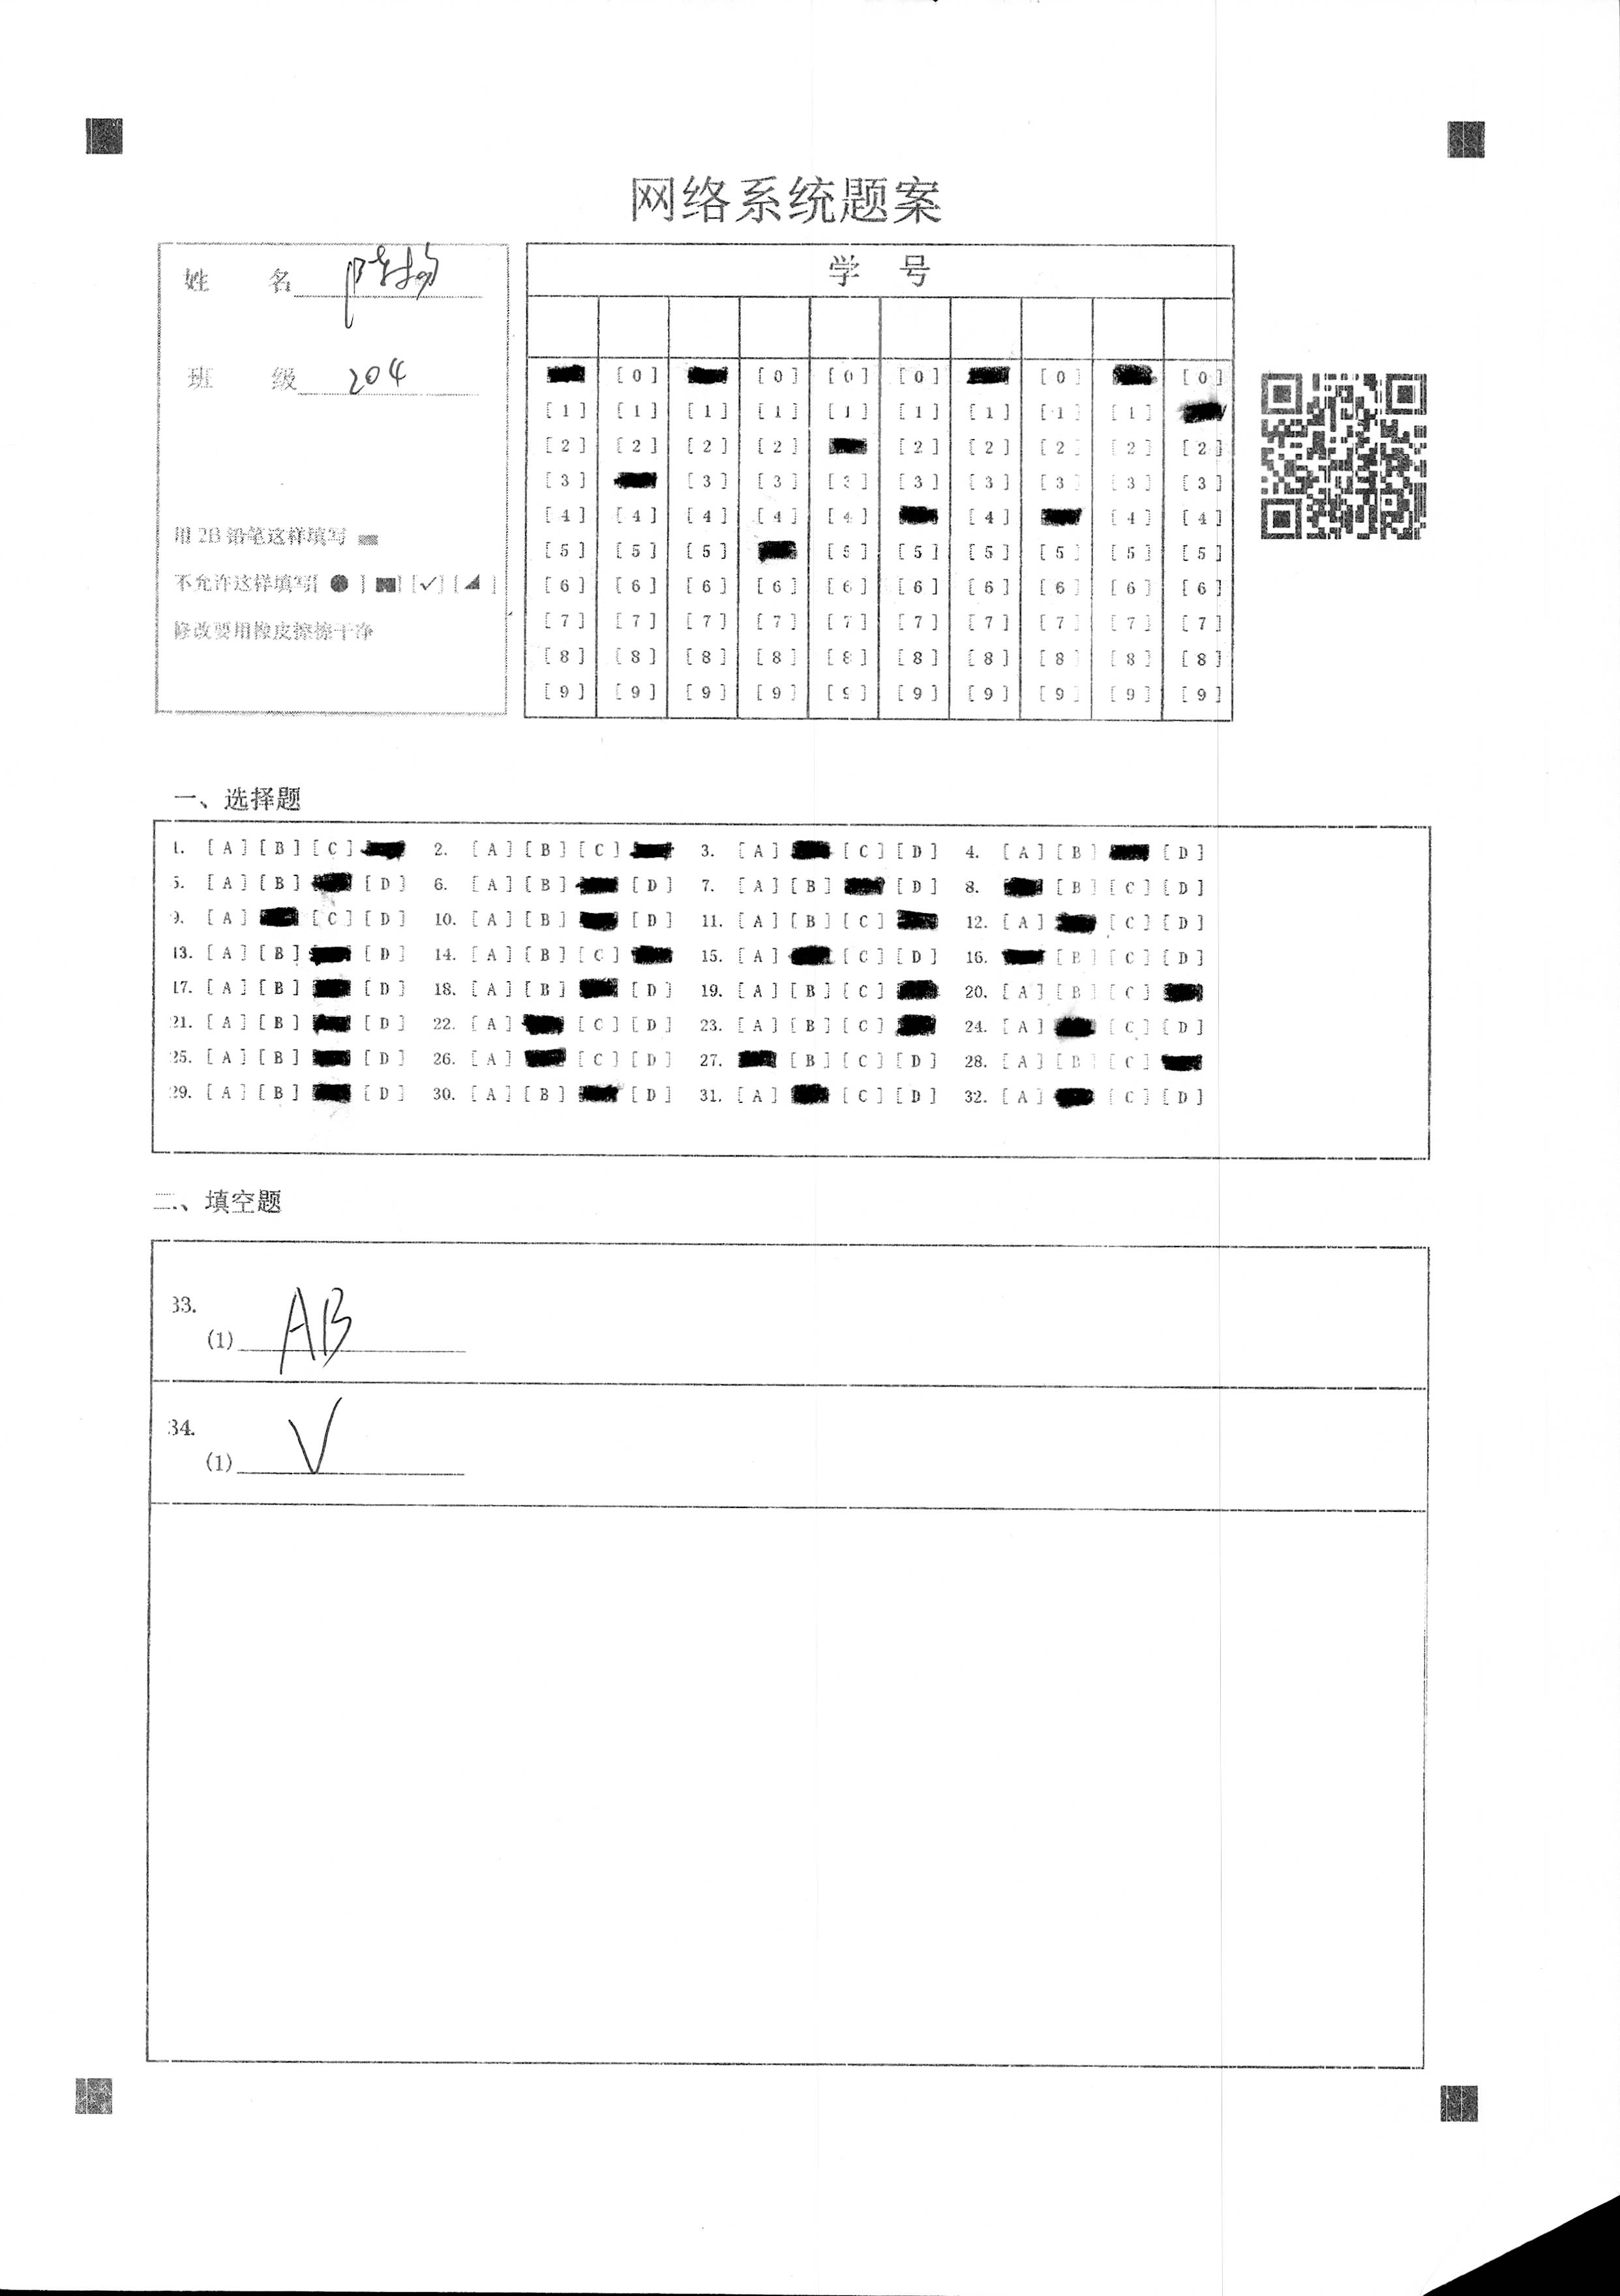 网络系统题案
姓 名
班 级 204
用2B铅笔这样填写
不允许这样填写[ ● ] [■] [✓] [◢ ]
修改要用橡皮擦擦干净
学 号
[0] [0] [0] [0] [0] [0]
[1] [1] [1] [1] [1] [1] [1] [1] [1]
[2] [2] [2] [2] [2] [2] [2] [2] [2]
[3] [3] [3] [3] [3] [3] [3] [3] [3]
[4] [4] [4] [4] [4] [4] [4] [4]
[5] [5] [5] [5] [5] [5] [5] [5] [5]
[6] [6] [6] [6] [6] [6] [6] [6] [6] [6]
[7] [7] [7] [7] [7] [7] [7] [7] [7] [7]
[8] [8] [8] [8] [8] [8] [8] [8] [8] [8]
[9] [9] [9] [9] [9] [9] [9] [9] [9] [9]
一、选择题
1. [A] [B] [C] 2. [A] [B] [C] 3. [A] [C] [D] 4. [A] [B] [D]
5. [A] [B] [D] 6. [A] [B] [D] 7. [A] [B] [D] 8. [B] [C] [D]
9. [A] [C] [D] 10. [A] [B] [D] 11. [A] [B] [C] 12. [A] [C] [D]
13. [A] [B] [D] 14. [A] [B] [C] 15. [A] [C] [D] 16. [B] [C] [D]
17. [A] [B] [D] 18. [A] [B] [D] 19. [A] [B] [C] 20. [A] [B] [C]
21. [A] [B] [D] 22. [A] [C] [D] 23. [A] [B] [C] 24. [A] [C] [D]
25. [A] [B] [D] 26. [A] [C] [D] 27. [B] [C] [D] 28. [A] [B] [C]
29. [A] [B] [D] 30. [A] [B] [D] 31. [A] [C] [D] 32. [A] [C] [D]
二、填空题
33.
(1) AB
34.
(1) V